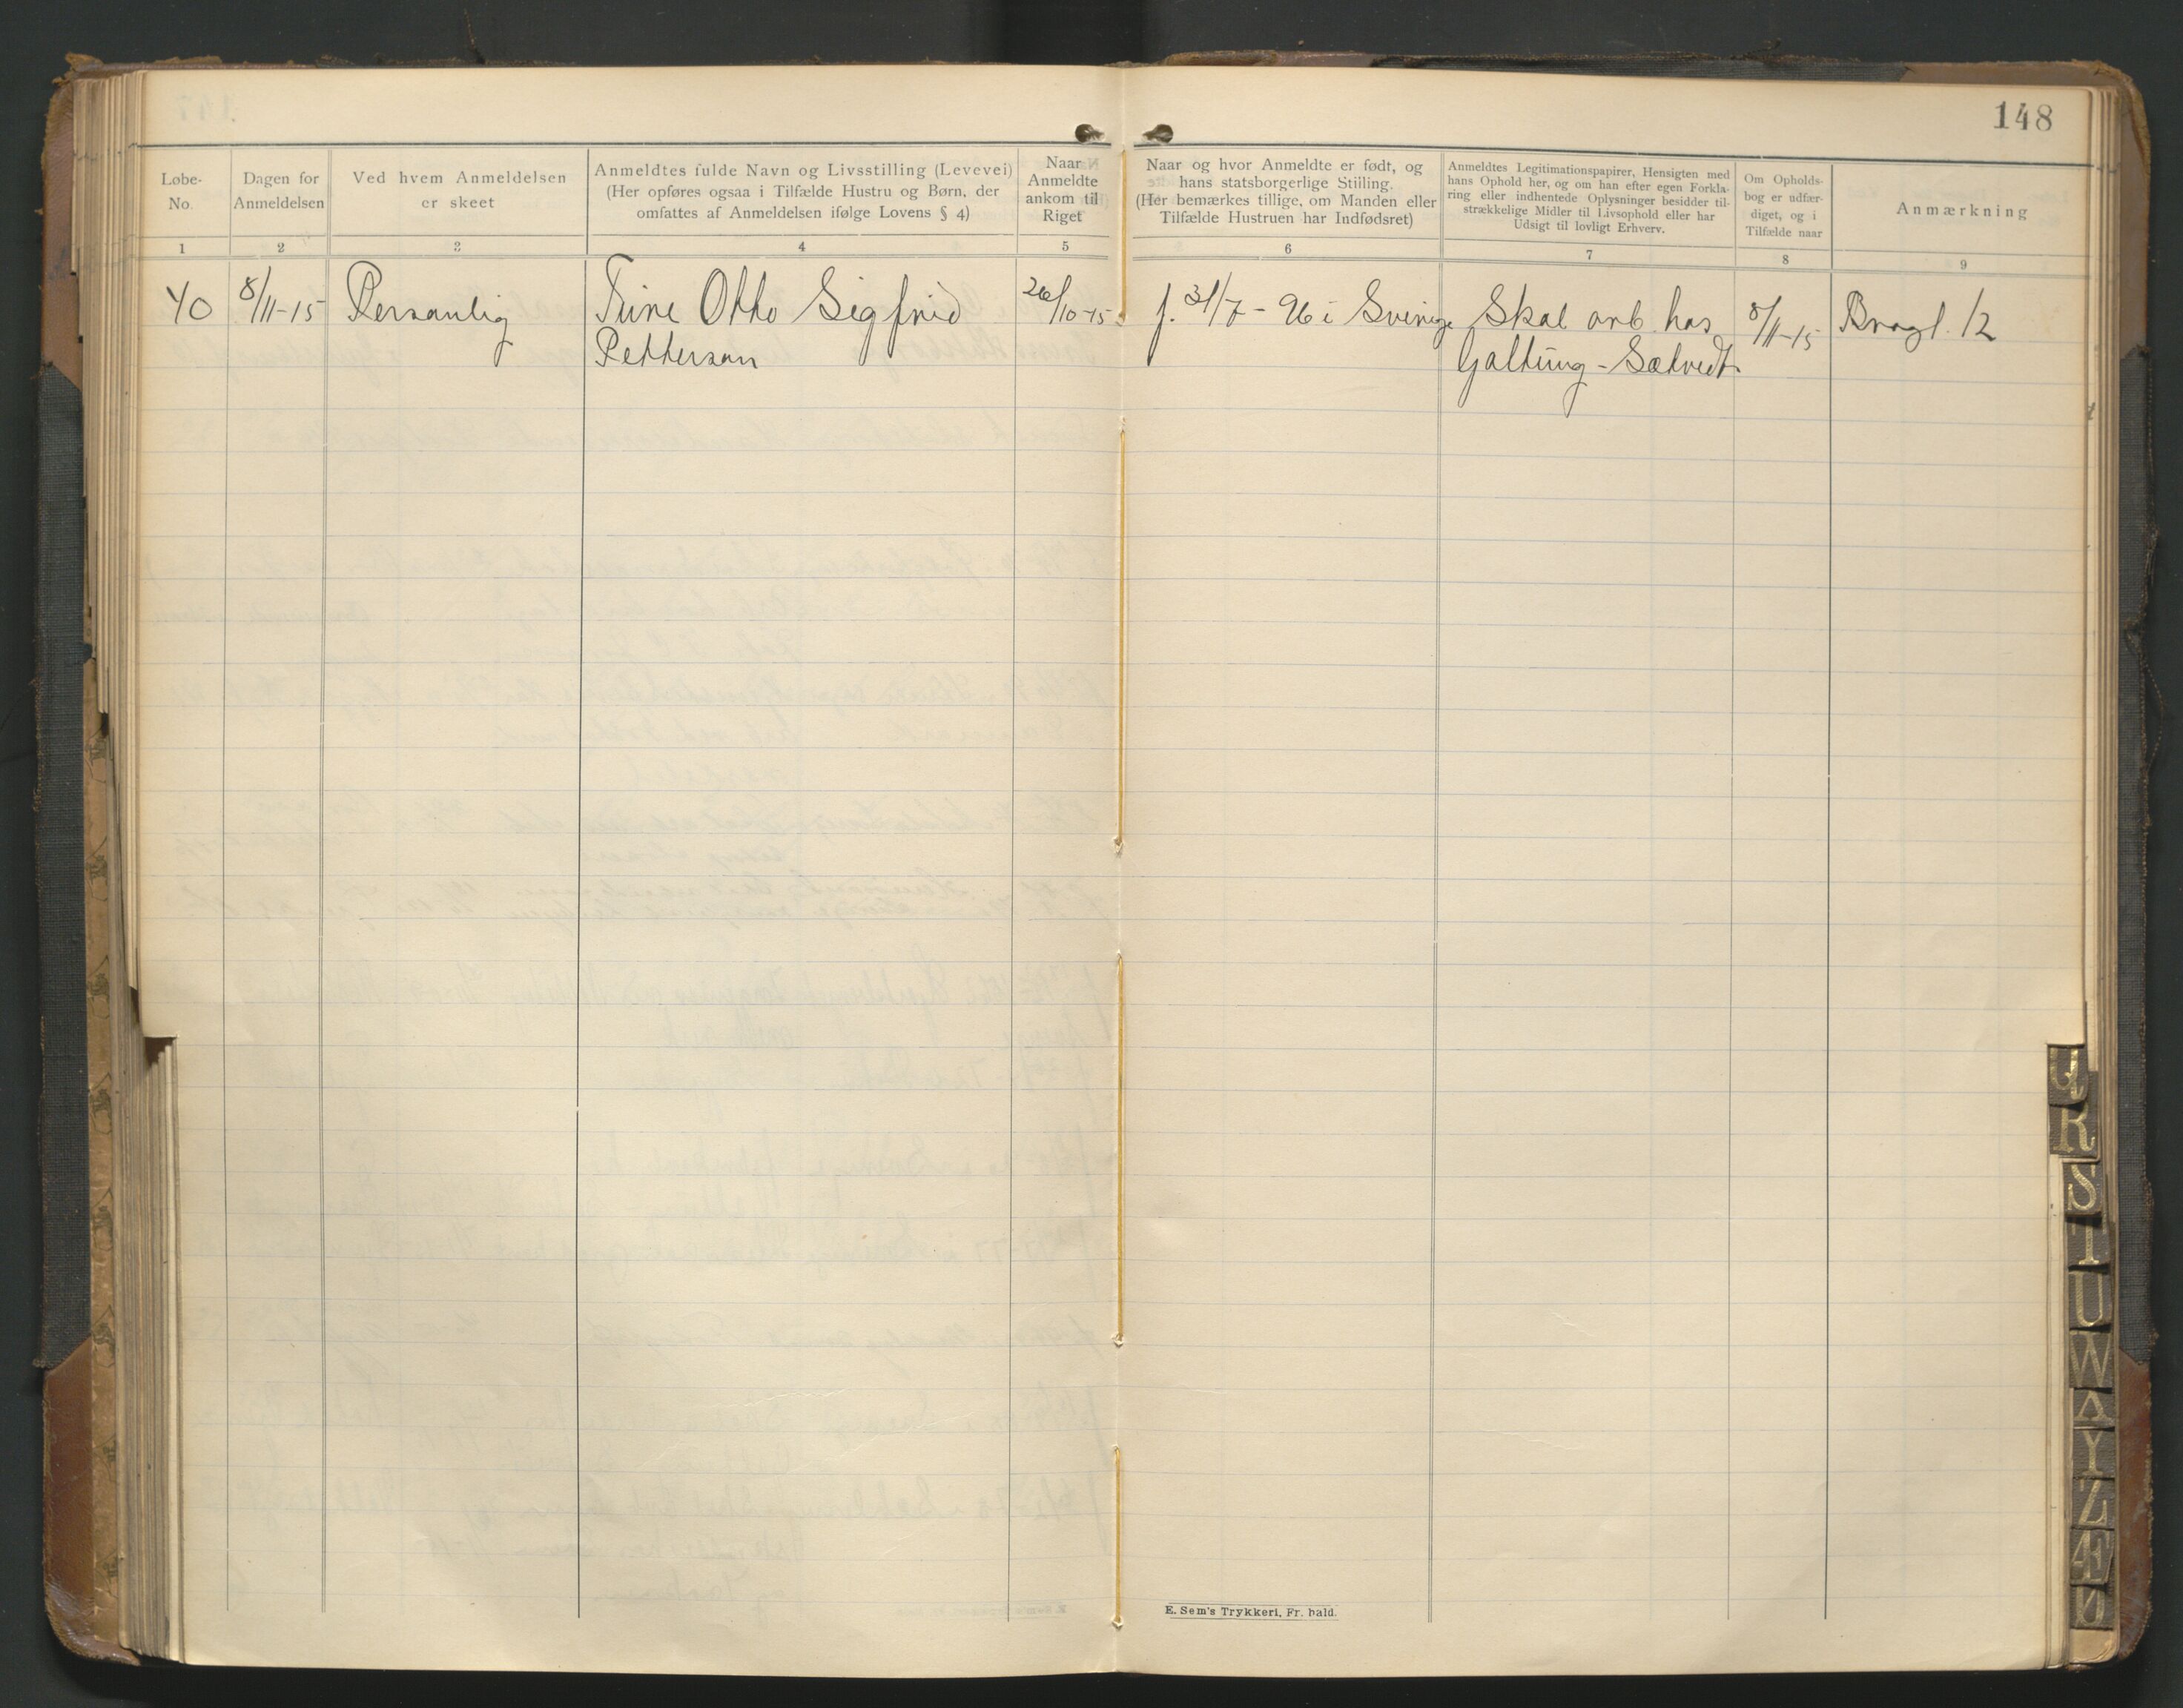 148
Løbe-
No.
Dagen for
Anmeldelsen
Ved hvem Anmeldelsen
er skeet
Anmeldtes fulde Navn og Livsstilling (Levevei)
(Her opføres ogsaa i Tilfælde Hustru og Børn, der
omfattes af Anmeldelsen ifølge Lovens § 4)
Naar
Anmeldte
ankom til
Riget
Naar og hvor Anmeldte er født, og
hans statsborgerlige Stilling.
(Her bemærkes tillige, om Manden eller
Tilfælde Hustruen har Indfødsret)
Anmeldtes Legitimationspapirer, Hensigten med
hans Ophold her, og om han efter egen Forkla-
ring eller indhentede Oplysninger besidder til-
strækkelige Midler til Livsophold eller har
Udsigt til lovligt Erhverv.
Om Opholds-
bog er udfær-
diget, og i
Tilfælde naar
Anmærkning
1 2 3 4 5 6 7 8 9
40 8/11-15 Personlig Ture Otto Sigfrid 26/10-15 f. 31/7-96 i Sverige Skal arb. hos 8/11-15 Bragl. 12
Petterson Galtung-Sætvedt
E. Sem's Trykkeri, Fr. hald.
Q
R
S
T
U
W
Y
Z
Æ
Ø